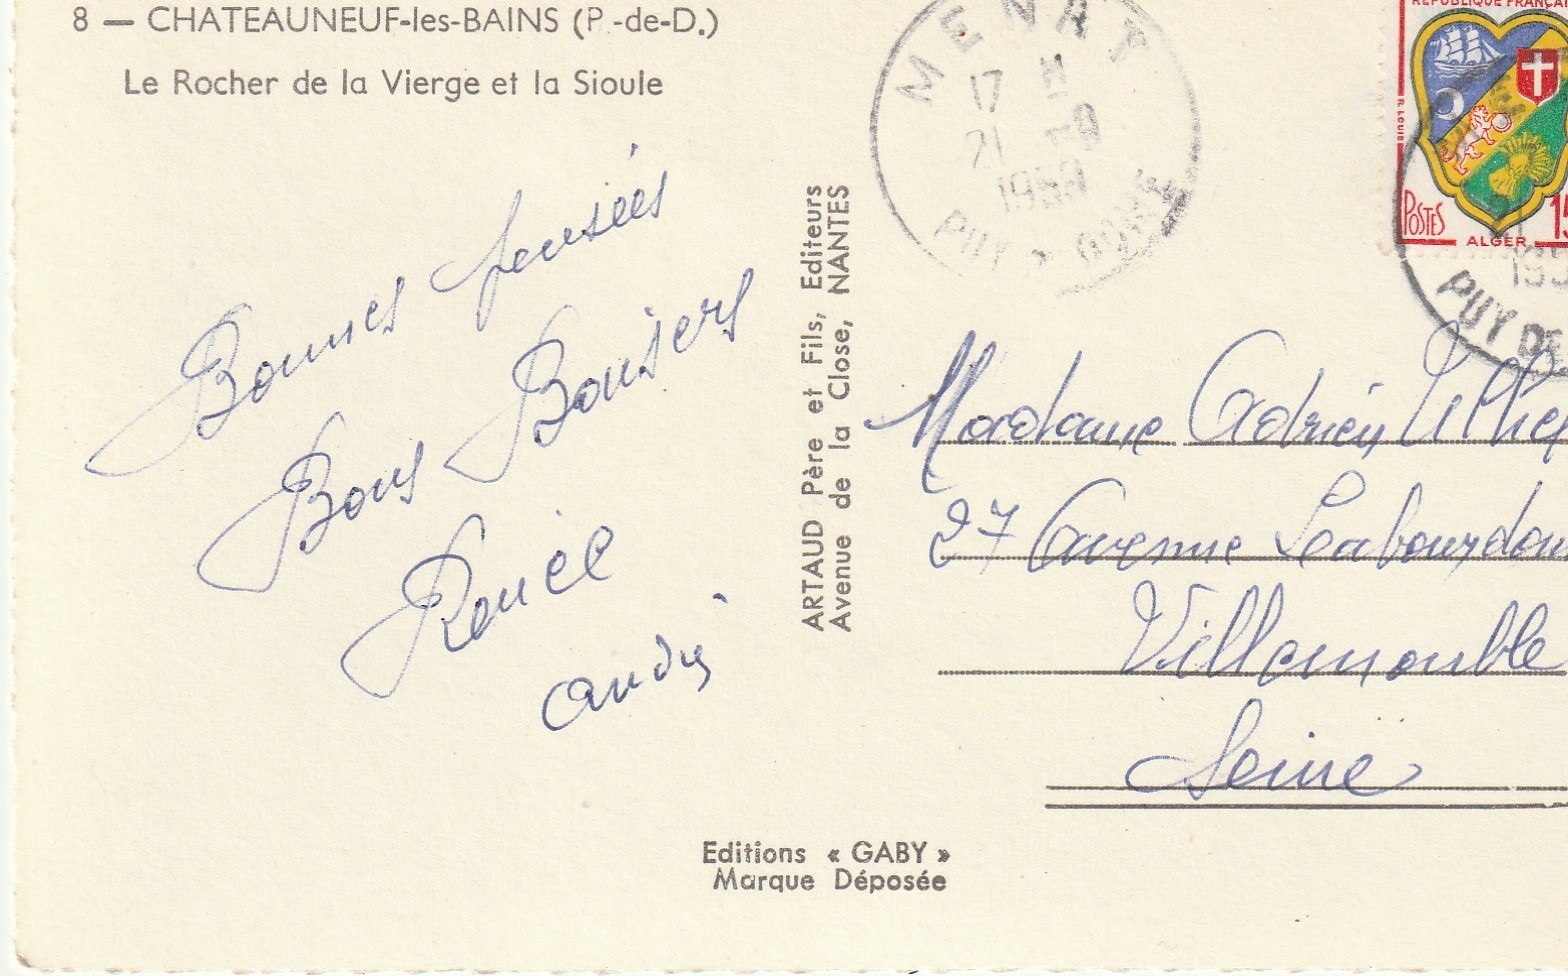 8 — CHATEAUNEUF-les-BAINS (P.-de-D.)
Le Rocher de la Vierge et la Sioule
Bonnes pensées
Bons Baisers
André
ARTAUD Père et Fils, Editeurs
Avenue de la Close, NANTES
MENAT
17 H
21 -9
1959
PUY DE DOME
REPUBLIQUE FRANÇAI
R. LOUIS
POSTES
15
ALGER
195
PUY DE
Madame Adrien
27 Avenue Labourdon
Villemomble
Seine
Editions « GABY »
Marque Déposée